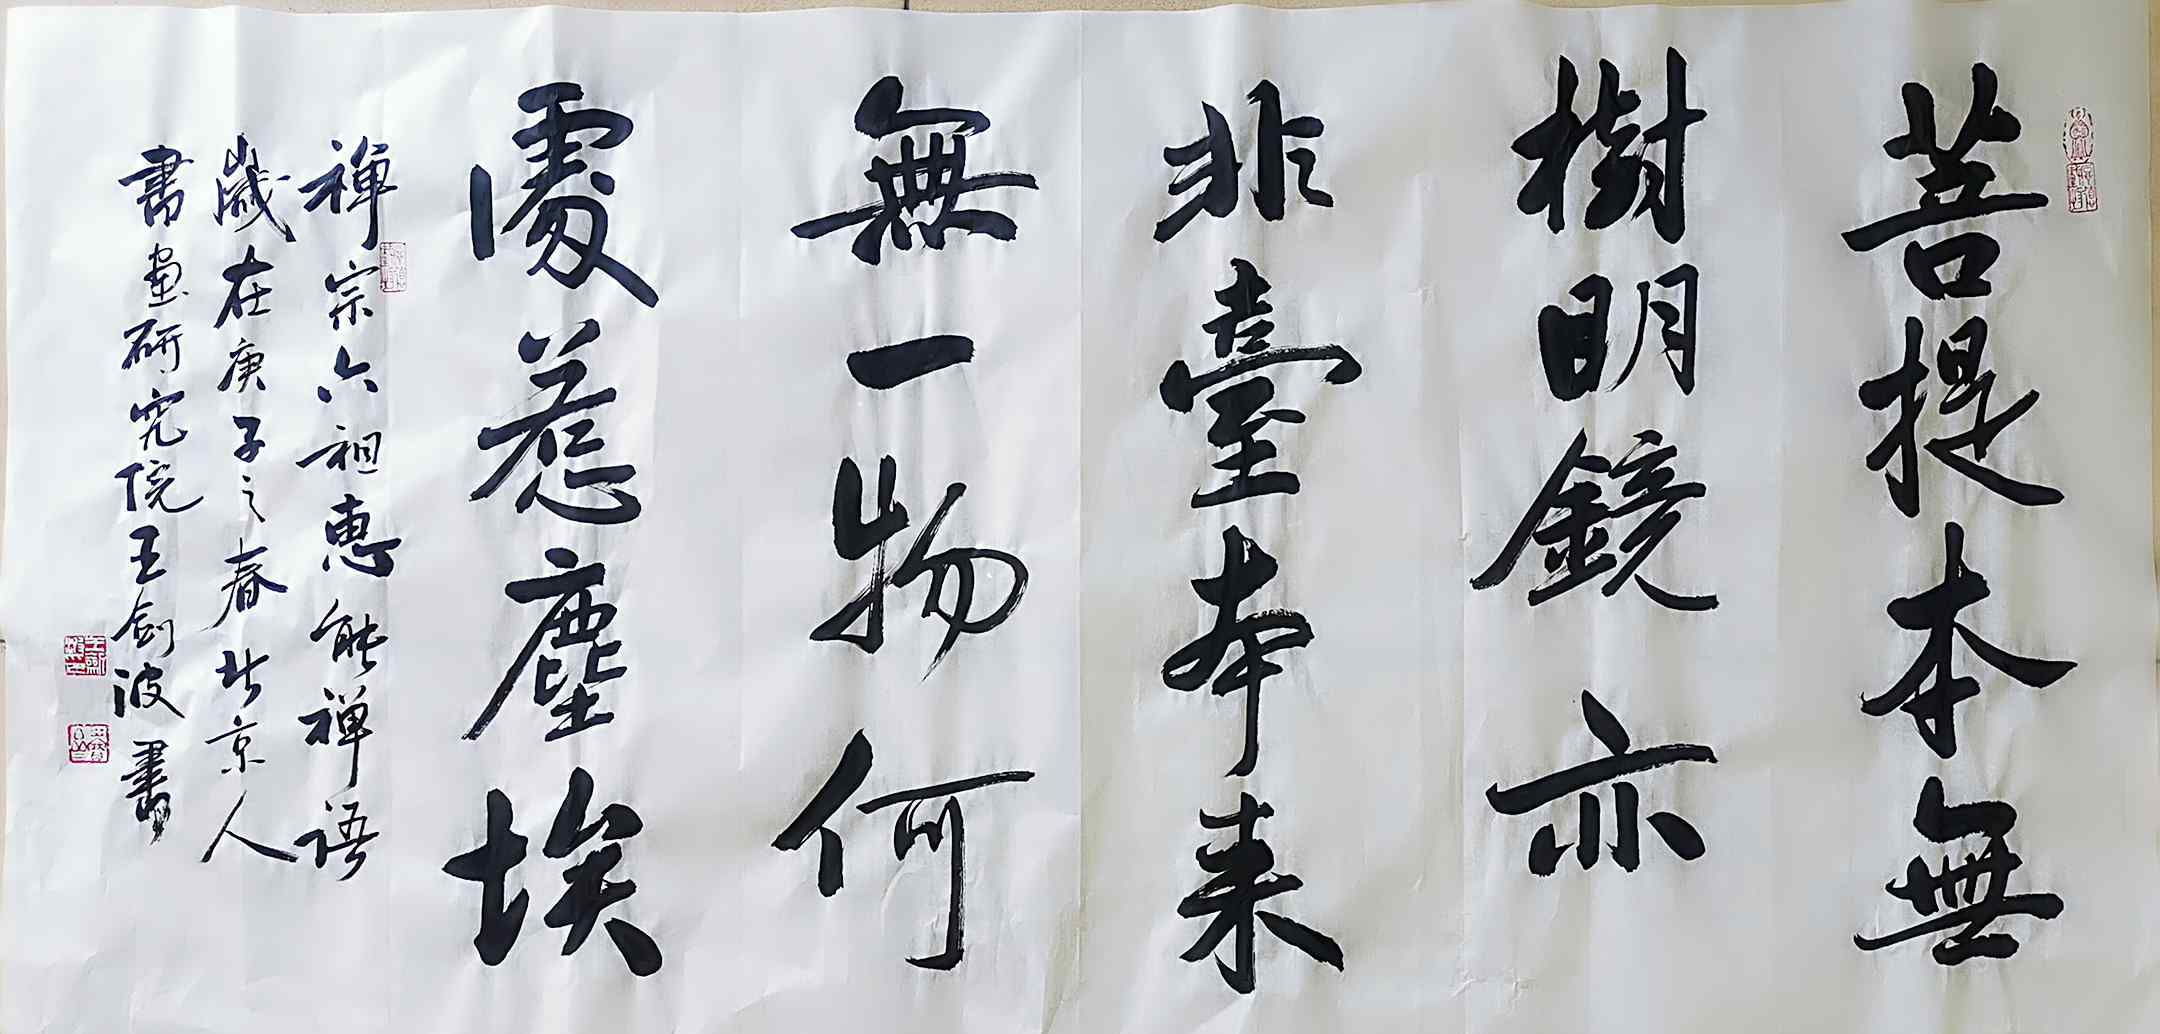 菩提本無
樹明鏡亦
非臺本来
無一物何
處惹塵埃
禅宗六祖惠能禅语
歲在庚子之春北京人
書画研究院王剑波書